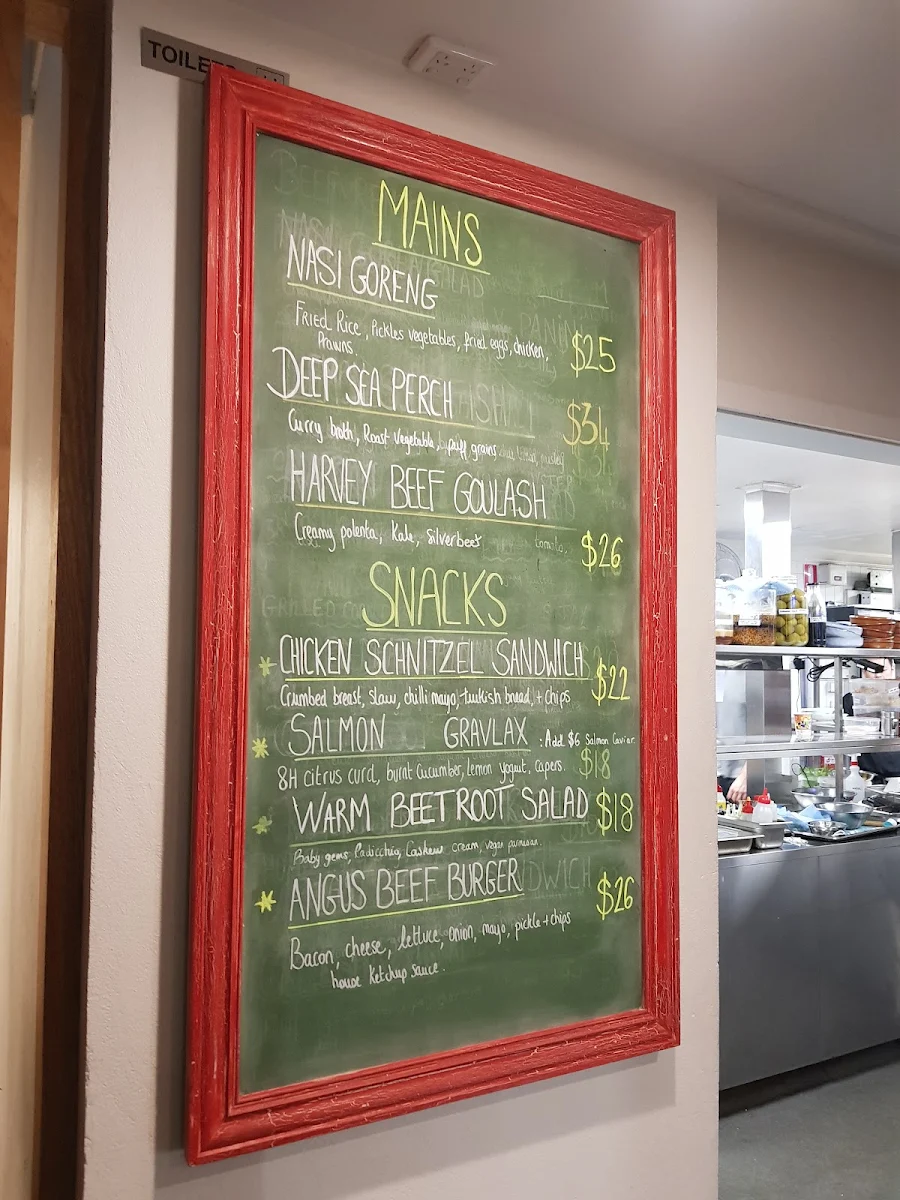 TOILETS
MAINS
NASI GORENG
Fried Rice, Pickles vegetables, fried eggs, chicken,
Prawns.
$25
DEEP SEA PERCH
$34
Curry broth, Roast Vegetable, puff grains
HARVEY BEEF GOULASH
Creamy polenta, Kale, Silverbeet
$26
SNACKS
* CHICKEN SCHNITZEL SANDWICH
$22
Crumbed breast, slaw, chilli mayo, turkish bread, + chips
* SALMON GRAVLAX : Add $6 Salmon Caviar.
$18
8H citrus curd, burnt Cucumber, lemon yogurt, capers.
* WARM BEETROOT SALAD $18
Baby gems, Radicchio, Cashew cream, vegan parmesan.
* ANGUS BEEF BURGER $26
Bacon, cheese, lettuce, onion, mayo, pickle + chips
house Ketchup sauce.